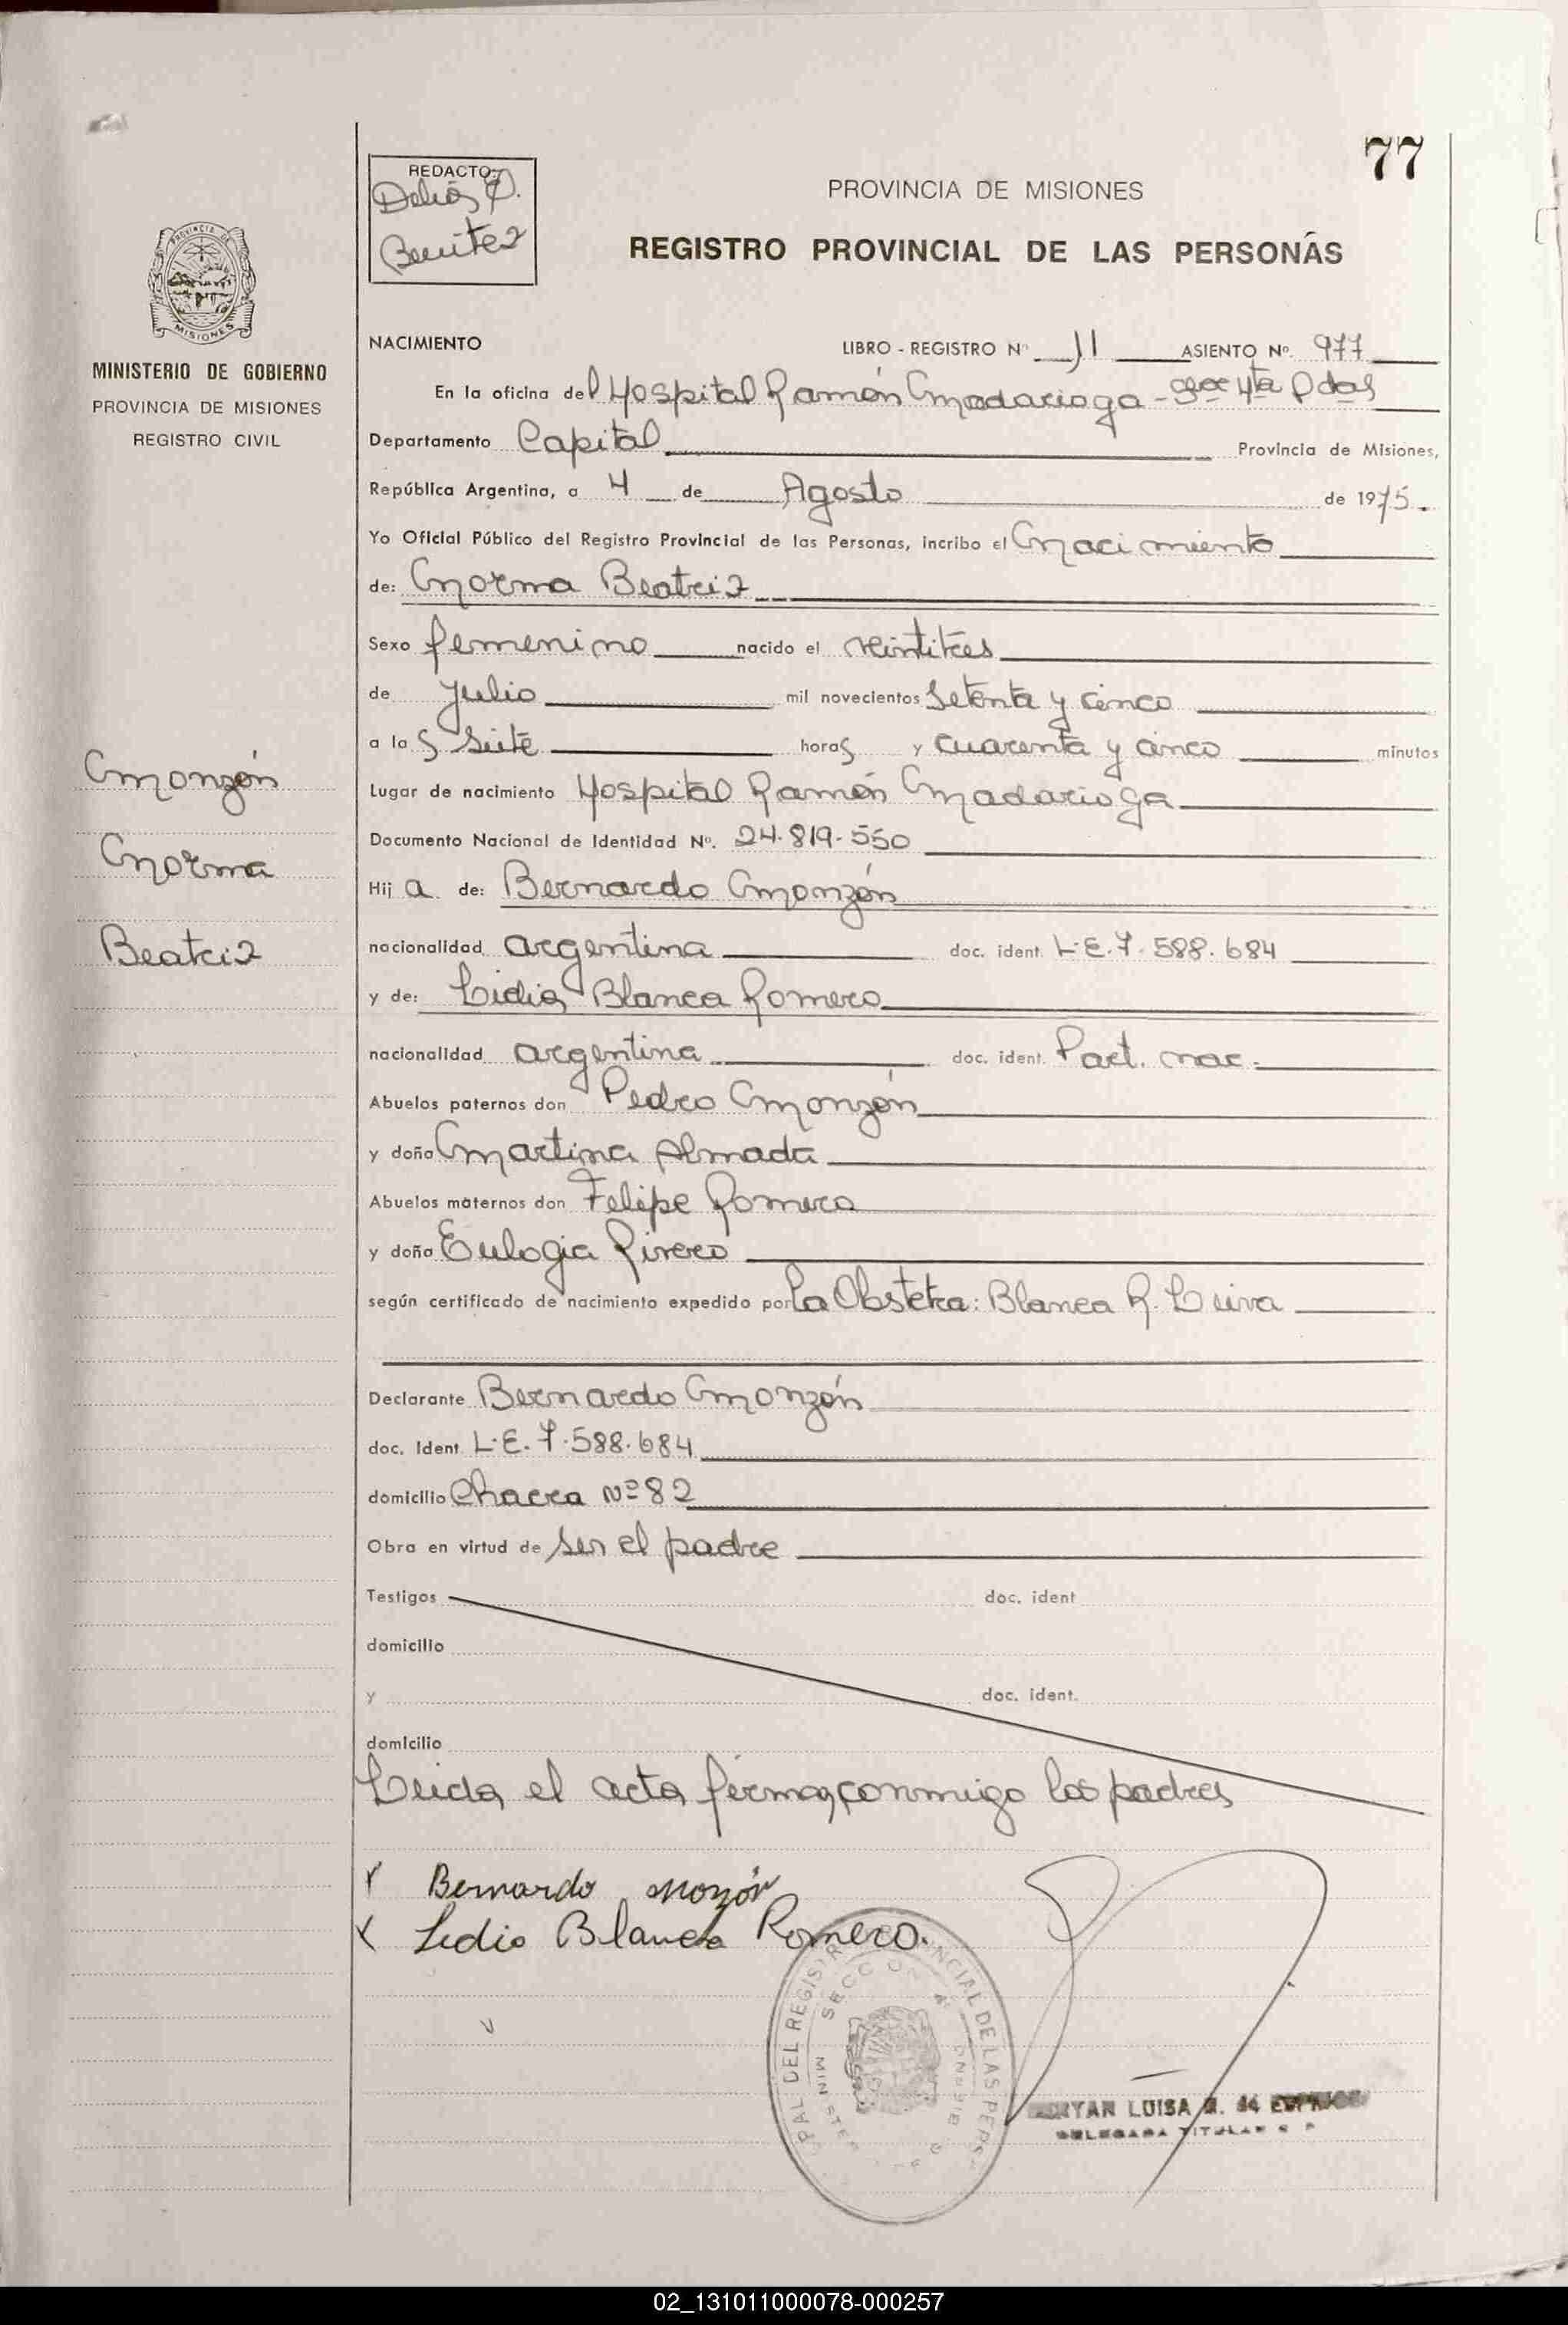 77
REDACTO:
Delia J.
Benitez
PROVINCIA DE MISIONES
REGISTRO PROVINCIAL DE LAS PERSONAS
MISIONES
MINISTERIO DE GOBIERNO
PROVINCIA DE MISIONES
REGISTRO CIVIL
NACIMIENTO LIBRO - REGISTRO Nº II ASIENTO Nº. 977
En la oficina del Hospital Ramón Madariaga - Secc 4ta Pdas
Departamento Capital Provincia de Misiones,
República Argentina, a 4 de Agosto de 1975.
Yo Oficial Público del Registro Provincial de las Personas, incribo el Nacimiento
de: Norma Beatriz
Sexo femenino nacido el veintitres
de Julio mil novecientos Setenta y cinco
a las Siete horas y cuarenta y cinco minutos
Monzón
Norma
Beatriz
Lugar de nacimiento Hospital Ramón Madariaga
Documento Nacional de Identidad Nº. 24.819.550
Hija de: Bernardo Monzón
nacionalidad argentina doc. ident. L.E. 7.588.684
y de: Lidia Blanca Romero
nacionalidad argentina doc. ident. Part. nac.
Abuelos paternos don Pedro Monzón
y doña Martina Almada
Abuelos maternos don Felipe Romero
y doña Eulogia Rivero
según certificado de nacimiento expedido por La Obstetra: Blanca R. Leiva
Declarante Bernardo Monzón
doc. Ident. L.E. 7.588.684
domicilio Chacra Nº 82
Obra en virtud de ser el padre
Testigos doc. ident
domicilio
y doc. ident.
domicilio
Leida el acta firman conmigo los padres
Bernardo Monzón
Lidia Blanca Romero.
DEL REGISTRO PROVINCIAL DE LAS PERS
LUISA
DELEGADA TITULAR
02_131011000078-000257